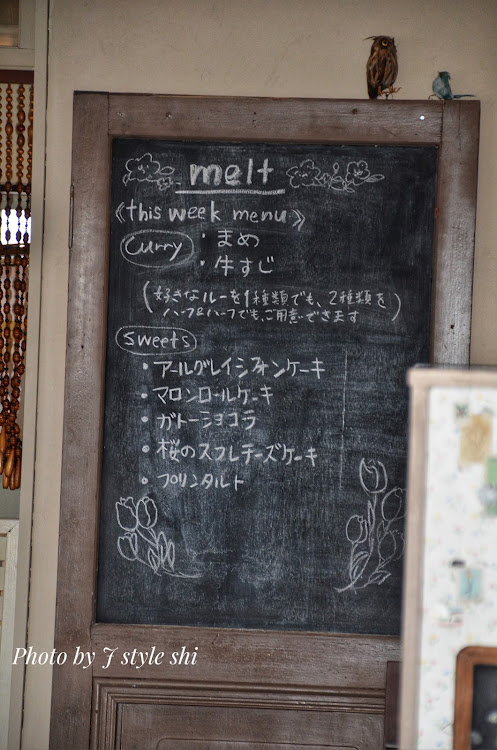 melt
《this week menu》
curry ・まめ
・牛すじ
(好きなルーを1種類でも、2種類を
ハーフ&ハーフでも、ご用意できます)
sweets
・アールグレイシフォンケーキ
・マロンロールケーキ
・ガトーショコラ
・桜のスフレチーズケーキ
・プリンタルト
Photo by J style shi